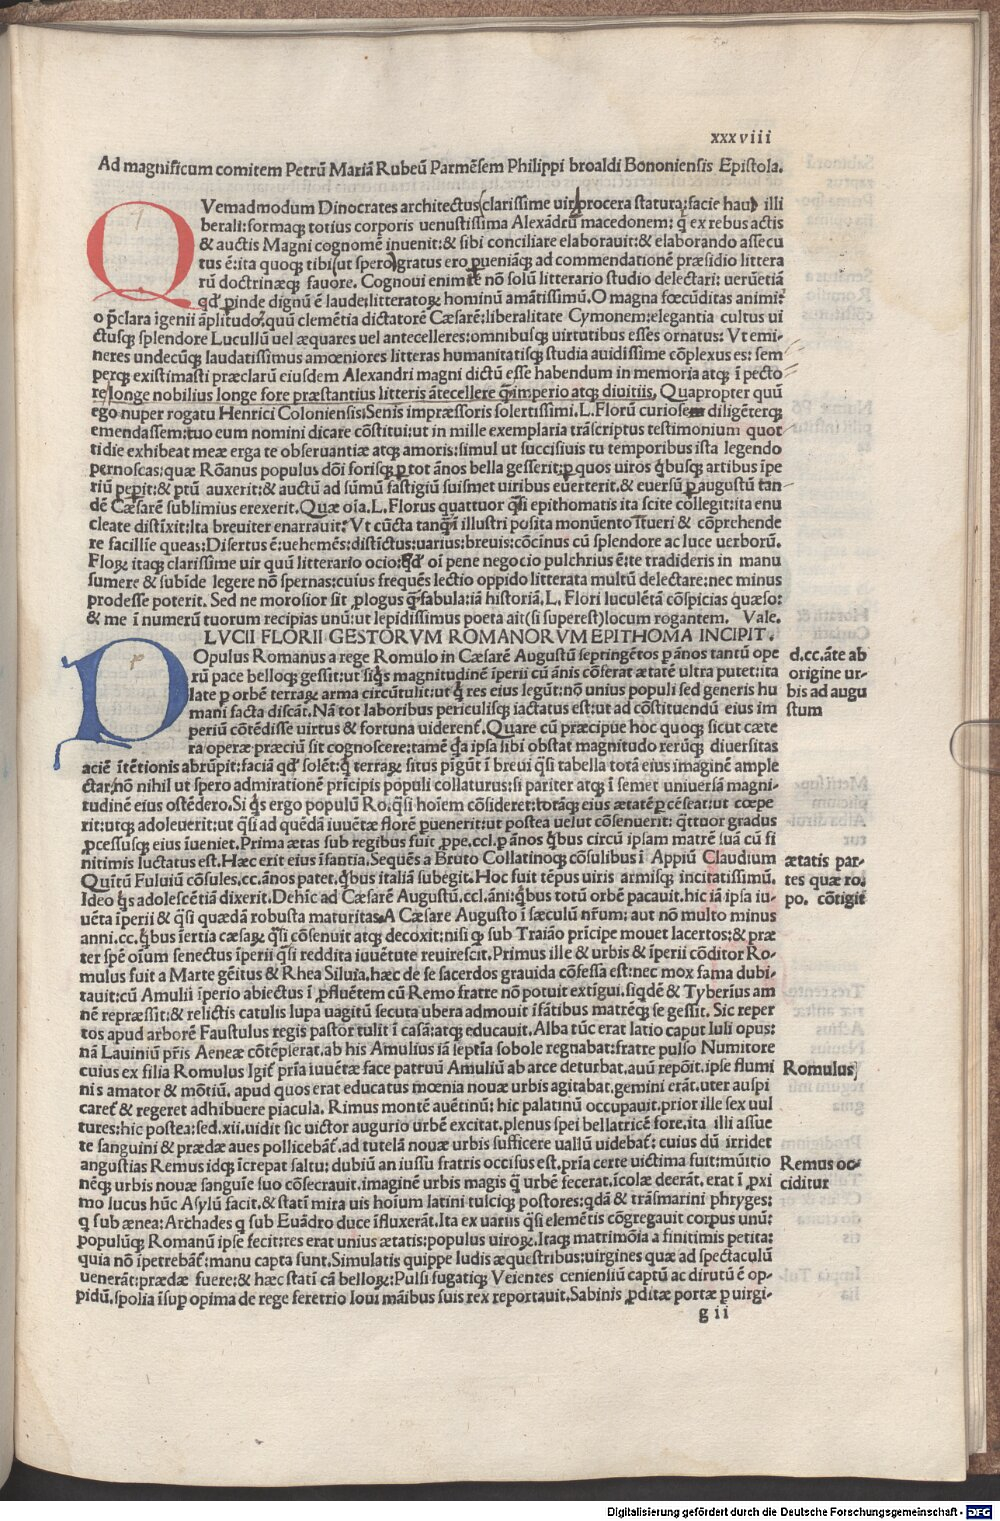 xxxviii
Ad magnificum comitem Petrū Mariā Rubeū Parmēsem Philippi broaldi Bononiensis Epistola.
QVemadmodum Dinocrates architectus clarissime uir procera statura: facie haud illi
berali: formaq; totius corporis uenustissima Alexādrū macedonem: q̄ ex rebus actis
& auctis Magni cognomē inuenit: & sibi conciliare elaborauit: & elaborando assecu
tus ē: ita quoq; tibi (ut spero) gratus ero ꝑueniāq; ad commendationē præsidio littera
rū doctrinæq; fauore. Cognoui enim te nō solū litterario studio delectari: uerūetiā
qd̄ ꝓinde dignū ē laude: litteratoꝝ hominū amātissimū. O magna fœcūditas animi:
o p̄clara īgenii āplitudo. quū clemētia dictatorē Cæsarē: liberalitate Cymonem: elegantia cultus ui
ctusq; splendore Lucullū uel æquares uel antecelleres: omnibusq; uirtutibus esses ornatus: Vt emi-
neres undecūq; laudatissimus amœniores litteras humanitatisq; studia auidissime cōplexus es: sem
perq; existimasti præclarū eiusdem Alexandri magni dictū esse habendum in memoria atq; ī pecto
re longe nobilius longe fore præstantius litteris ātecellere q̄ imperio atq; diuitiis. Quapropter quū
ego nuper rogatu Henrici Coloniensis: Senis impræssoris solertissimi. L. Florū curiose diligēterq;
emendassem: tuo eum nomini dicare cōstitui: ut in mille exemplaria trāscriptus testimonium quot
tidie exhibeat meæ erga te obseruantiæ atq; amoris: simul ut succisiuis tu temporibus ista legendo
pernoscas: quæ Rōanus populus dōi forisq; ꝑ tot ānos bella gesserit: ꝑ quos uiros q̄busq; artibus īpe
riū peꝑit: & ꝑtū auxerit: & auctū ad sūmū fastigiū suismet uiribus euerterit. & euersū ꝑ augustū tan-
dē Cæsarē sublimius erexerit. Quæ oīa. L. Florus quattuor q̄si epithomatis ita scite collegit: ita enu
cleate distīxit: Ita breuiter enarrauit: Vt cūcta tanq̄ ī illustri posita monūento ītueri & cōprehende
re facillīe queas: Disertus ē: uehemēs: distīctus: uarius: breuis: cōcīnus cū splendore ac luce uerborū.
Floꝝ itaq; clarissime uir quū litterario ocio: qd̄ oī pene negocio pulchrius ē: te tradideris in manu
sumere & subīde legere nō spernas: cuius frequēs lectio oppido litterata multū delectare: nec minus
prodesse poterit. Sed ne morosior sit ꝓlogus q̄ fabula: iā historiā. L. Flori luculētā cōspicias quæso:
& me ī numerū tuorum recipias unū: ut lepidissimus poeta ait (si superest) locum rogantem. Vale.
LVCII FLORII GESTORVM ROMANORVM EPITHOMA INCIPIT.
POpulus Romanus a rege Romulo in Cæsarē Augustū septingētos ꝑ ānos tantū ope
rū pace belloq; gessit: ut siq̄s magnitudinē īperii cū ānis cōferat ætatē ultra putet: ita
late ꝑ orbē terraꝝ arma circūtulit: ut q̄ res eius legūt: nō unius populi sed generis hu
mani facta discāt. Nā tot laboribus periculisq; iactatus est: ut ad cōstituendū eius im
periū cōtēdisse uirtus & fortuna uiderent᷑. Quare cū præcipue hoc quoq; sicut cæte
ra operæ præciū sit cognoscere: tamē q̄a ipsa sibi obstat magnitudo rerūq; diuersitas
aciē ītētionis abrūpit: faciā qd̄ solēt: q̄ terraꝝ situs pīgūt ī breui q̄si tabella totā eius imaginē ample
ctar: nō nihil ut spero admirationē prīcipis populi collaturus: si pariter atq; ī semet uniuersā magni-
tudinē eius ostēdero. Si q̄s ergo populū Ro. q̄si hoīem cōsideret: totāq; eius ætatē ꝑcēseat: ut cœpe
rit: utq; adoleuerit: ut q̄si ad quēdā iuuētæ florē ꝑuenerit: ut postea uelut cōsenuerit: q̄ttuor gradus
ꝓcessusq; eius īueniet. Prima ætas sub regibus fuit ꝓpe. ccl. ꝑ ānos q̄bus circū ipsam matrē suā cū fi
nitimis luctatus est. Hæc erit eius īfantia. Sequēs a Bruto Collatinoq; cōsulibus ī Appiū Claudium
Quītū Fuluiū cōsules. cc. ānos patet. q̄bus italiā subegit. Hoc fuit tēpus uiris armisq; incitatissimū.
Ideo q̄s adolescētiā dixerit. Dehīc ad Cæsarē Augustū. ccl. āni: q̄bus totū orbē pacauit. hic iā ipsa iu-
uēta īperii & q̄si quædā robusta maturitas. A Cæsare Augusto ī sæculū nr̄um: aut nō multo minus
anni. cc. q̄bus īertia cæsaꝝ q̄si cōsenuit atq; decoxit: nisi q̄ sub Traiāo prīcipe mouet lacertos: & præ
ter spē oīum senectus īperii q̄si reddita iuuētute reuirescit. Primus ille & urbis & īperii cōditor Ro-
mulus fuit a Marte gēitus & Rhea Siluia. hæc de se sacerdos grauida cōfessā est: nec mox fama dubi-
tauit: cū Amulii īperio abiectus ī ꝓfluētem cū Remo fratre nō potuit extīgui. siqdē & Tyberīus am
nē repræssit: & relictis catulis lupa uagitū secuta ubera admouit īfātibus matrēq; se gessit. Sic reper
tos apud arborē Faustulus regis pastor tulit ī casā: atq; educauit. Alba tūc erat latio caput Iuli opus:
nā Lauiniū pr̄is Aeneæ cōtēpserat. ab his Amulius iā septīa sobole regnabat: fratre pulso Numitore
cuius ex filia Romulus Igit᷑ prīa iuuētæ face patruū Amuliū ab arce deturbat. auū repōit. ipse flumi
nis amator & mōtiū. apud quos erat educatus mœnia nouæ urbis agitabat. gemini erāt. uter auspi
caret᷑ & regeret adhibuere piacula. Rimus montē auētinū: hic palatinū occupauit. prior ille sex uul
tures: hic postea: sed. xii. uidit sic uictor augurio urbē excitat. plenus spei bellatricē fore. ita illi assue
te sanguini & prædæ aues pollicebāt᷑. ad tutelā nouæ urbis sufficere uallū uidebat᷑: cuius dū irridet
angustias Remus idq; īcrepat saltu: dubiū an iussu fratris occisus est. prīa certe uictima fuit: mūitio
nēq; urbis nouæ sanguīe suo cōsecrauit. imaginē urbis magis q̄ urbē fecerat. īcolæ deerāt. erat ī ꝓxi
mo lucus hūc Asylū facit. & statī mira uis hoīum latini tusciq; pastores: qdā & trāsmarini phryges:
q̄ sub ænea: Archades q̄ sub Euādro duce īfluxerāt. Ita ex uariis q̄si elemētis cōgregauit corpus unū:
populūq; Romanū ipse fecit: res erat unius ætatis: populus uiroꝝ. Itaq; matrimōia a finitimis petita:
quia nō īpetrebāt᷑: manu capta sunt. Simulatis quippe ludis æquestribus: uirgines quæ ad spectaculū
uenerāt: prædæ fuere: & hæc statī cā belloꝝ: Pulsi fugatiq; Veientes ceniensiū captū ac dirutū ē op-
pidū. spolia īsuꝑ opima de rege feretrio Ioui māibus suis rex reportauit. Sabinis ꝓditæ portæ ꝑ uirgi-
g ii
d.cc. āte ab
origine ur-
bis ad augu
stum
ætatis par-
tes quæ ro.
po. cōtigit
Romulus
Remus oc-
ciditur
Digitalisierung gefördert durch die Deutsche Forschungsgemeinschaft - DFG